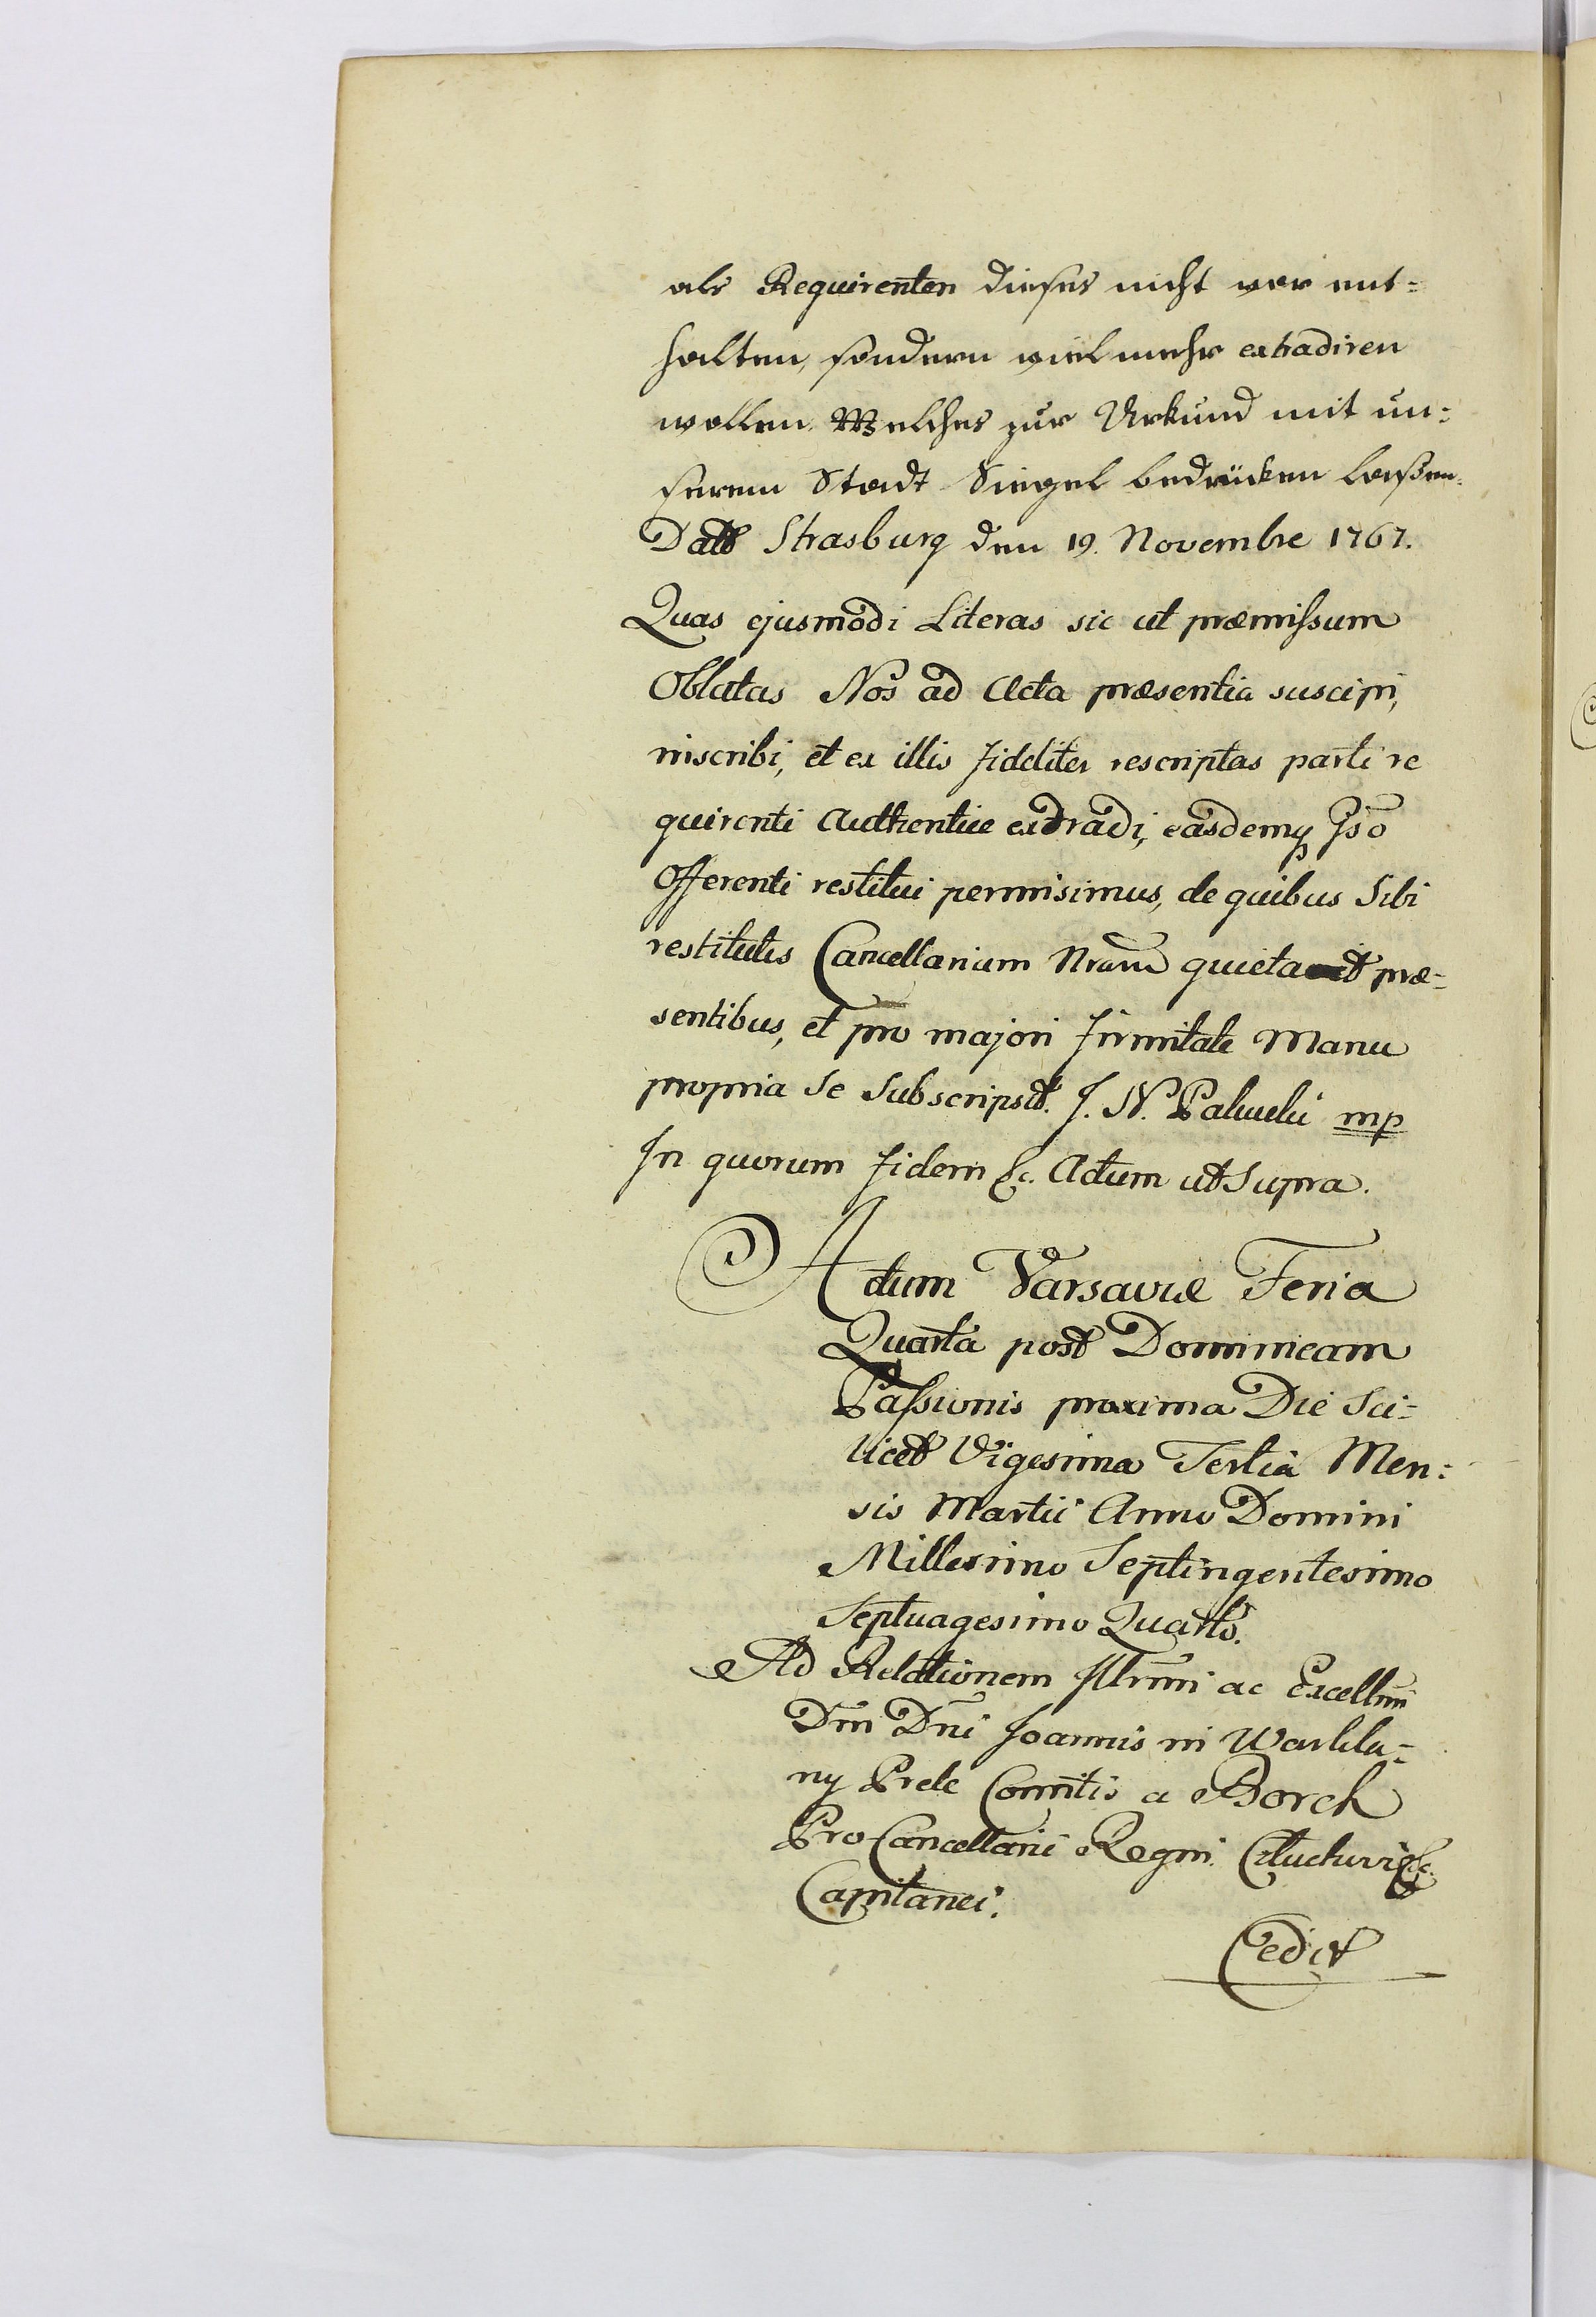 als Requirenten dieses nicht vor ent=
halten, sondern viel mehr extradiren
wollen. Welches zur Urkund mit un=
serem Stadt Siegel bedrücken laßen.
Datt Strasburg den 19. Novembre 1767.
Quas ejusmodi Literas sic ut præmissum
Oblatas Nos ad Acta præsentia suscipi,
inscribi, et ex illis fideliter rescriptas parti re
quirenti Authentice extradi, easdemq Ipso
Offerenti restitui permisimus, de quibus Sibi
restitutis Cancellariam Nram quietavit præ=
sentibus, et pro majori firmitate Manu
propria se Subscripsit. J. N. mp
In quorum fidem &c. Actum ut Supra.
Actum Varsaviæ Feria
Quarta post Dominicam
Passionis proxima Die Sci=
licet Vigesima Tertia Men=
sis Martii Anno Domini
Millesimo Septingentesimo
Septuagesimo Quarto.
Ad Relationem Illrmi ac Excellmi
Dni Dni Joannis in Warkla=
ny Prele Comitis a Borch
Pro-Cancellarii Regni &c.
Capitanei.
Cedit